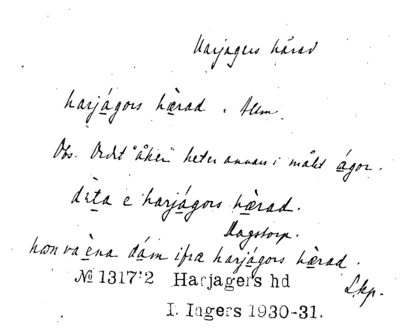 Harjagers härad
harjágors hèrad. Allm.
Obs. Ordet "åker" heter annars i målet ágor.
dèta e harjágors hèrad.
Dagstorp.
han va èna dám ifra harjágors hèrad.
Lkp.
№ 1317:2 Harjagers hd
I. Ingers 1930-31.